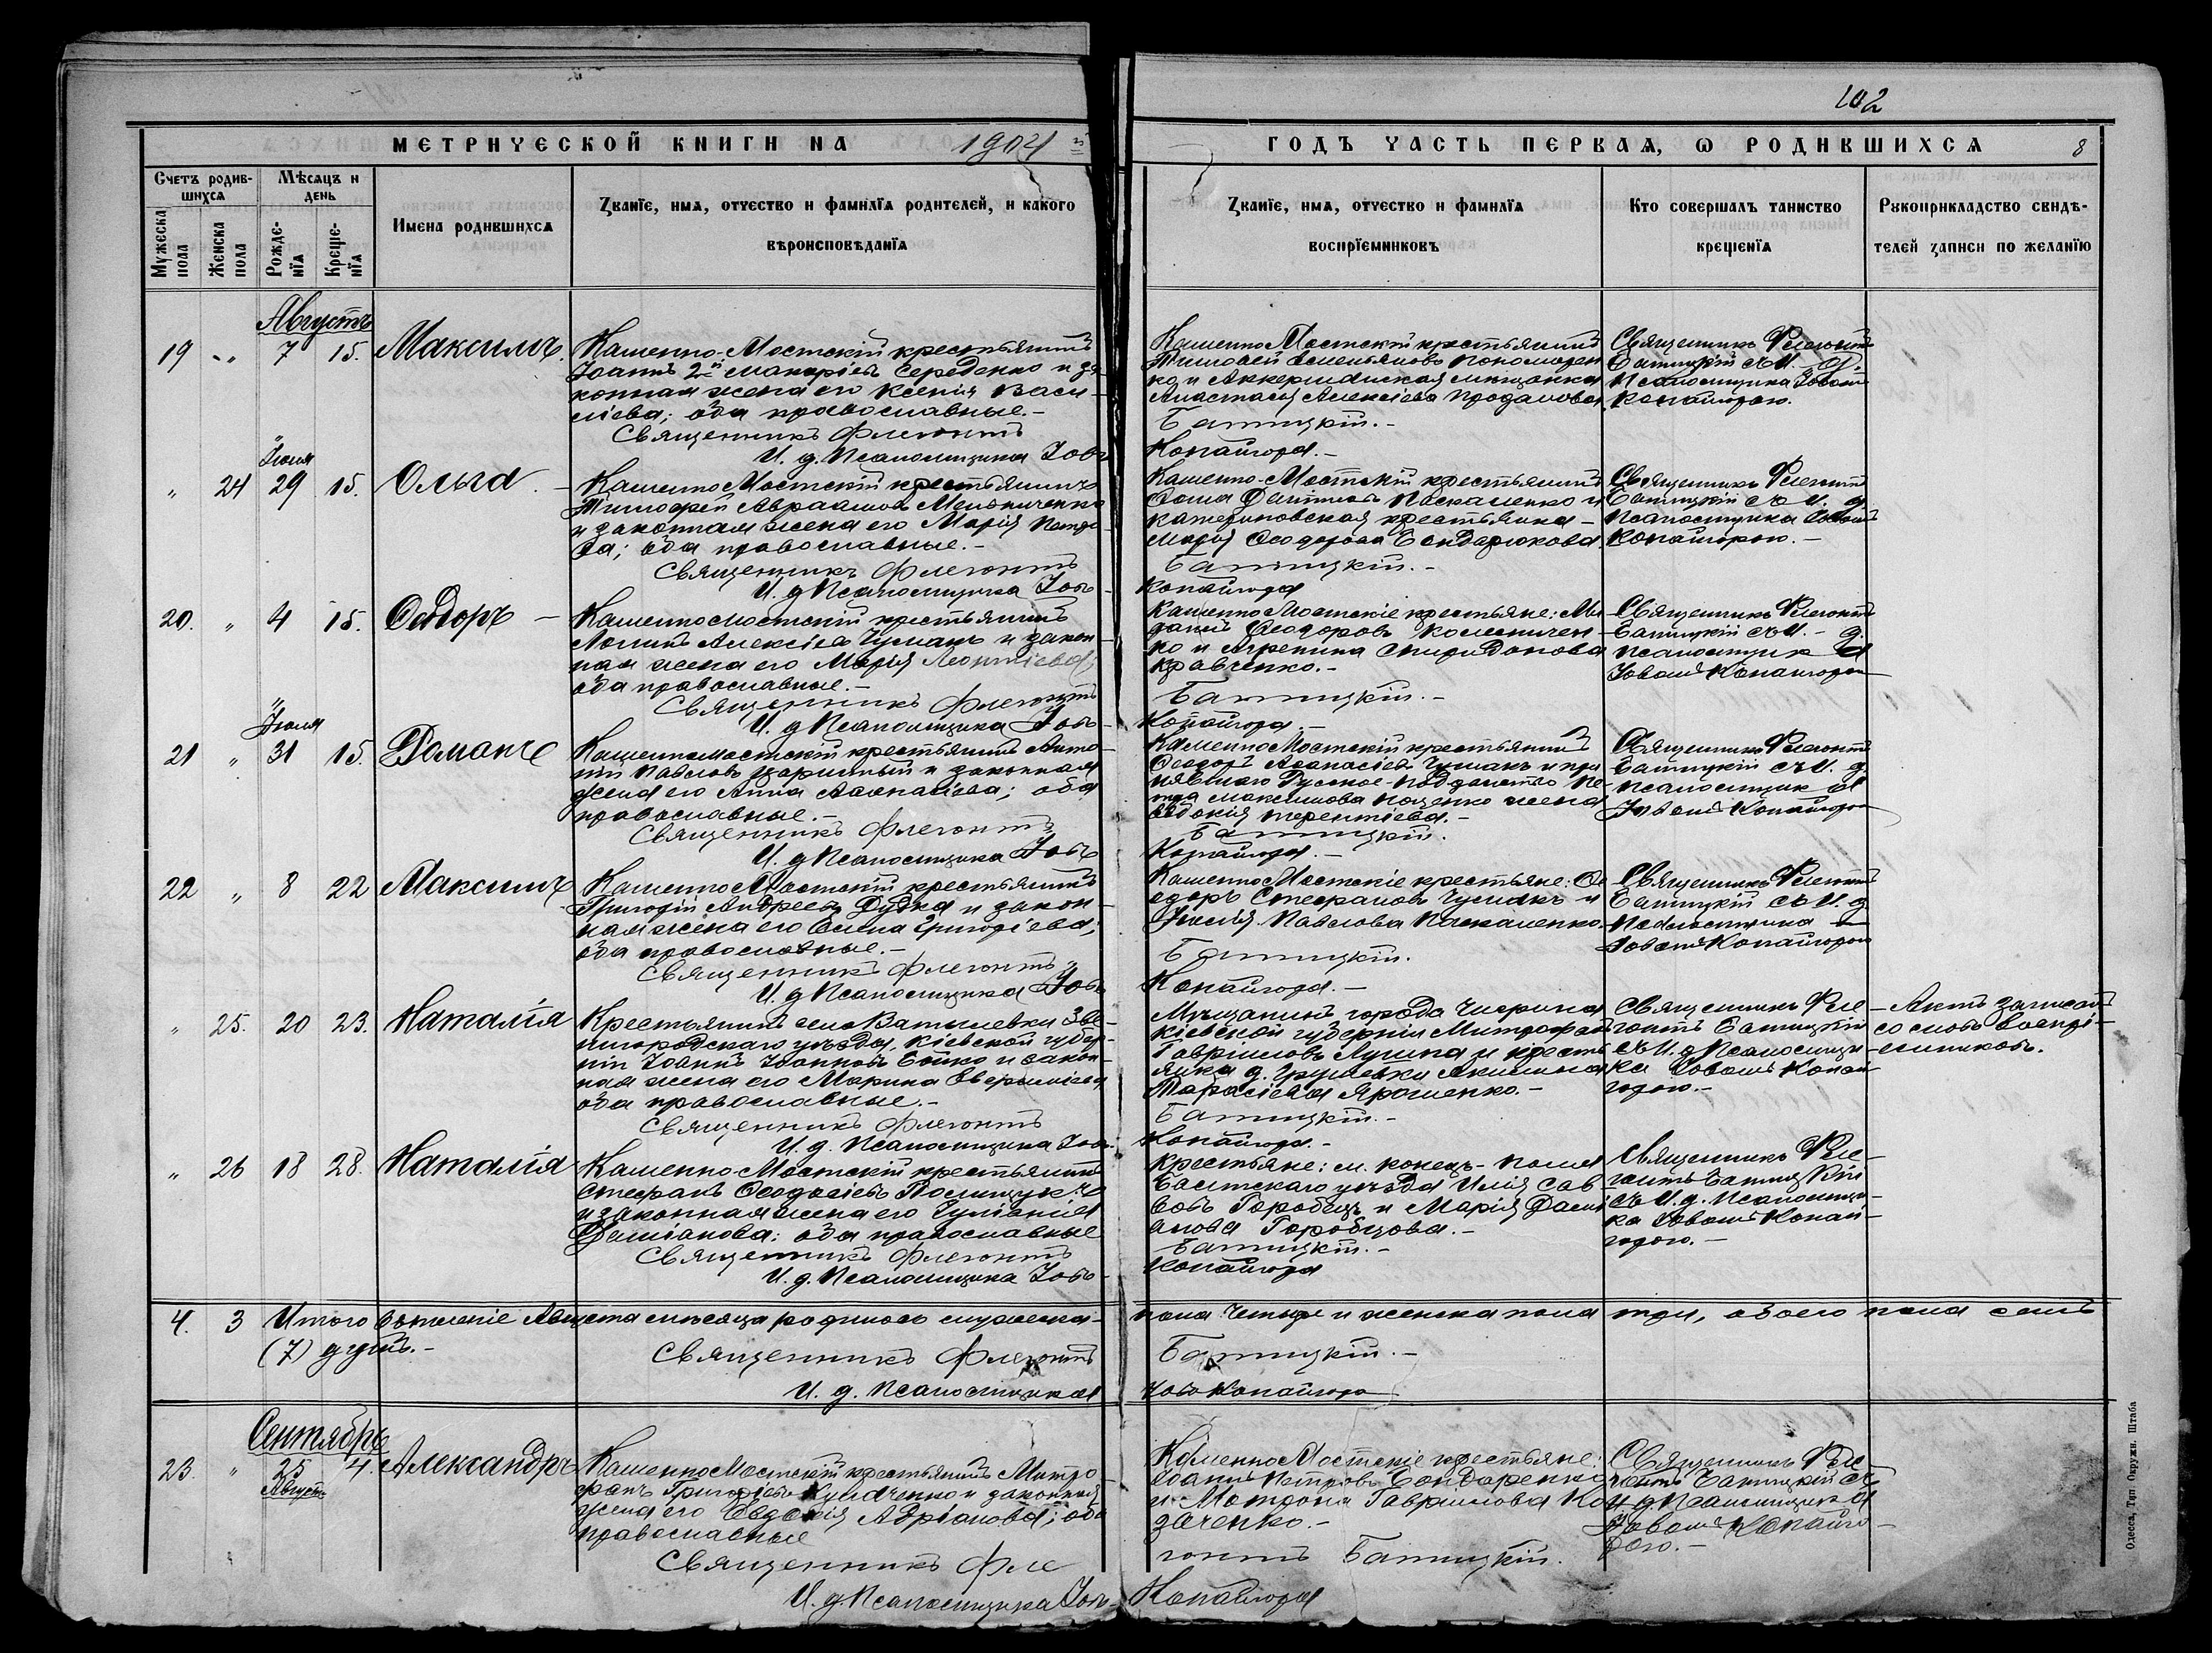 102
МЕТРИЧЕСКОЙ КНИГИ НА 1904 й
ГОДЪ ЧАСТЬ ПЕРВАЯ, Ѡ РОДИВШИХСЯ 8
Счетъ родив-
шихся
Мѣсяцъ и
день
Мужеска
пола
Женска
пола
Рожде-
нїя
Креще-
нїя
Имена родившихся
Званїе, имя, отчество и фамилїя родителей, и какого
вѣроисповѣданїя
Званїе, имя, отчество и фамилїя
воспрїемниковъ
Кто совершалъ таинство
крещенїя
Рукоприкладство свидѣ-
телей записи по желанїю
Августъ
19 „ 7 15. Максимъ
Каменно-Мостскій крестьянинъ
Іоаннъ 2й Макаріевъ Середенко и за-
конная жена его Ксенія Васи-
ліева; оба православные.-
Священникъ Флегонтъ
И. д. Псаломщика Іовъ
Каменно Мостскій крестьянинъ
Тимофей Емельяновъ Пономарен
ко и Аккерманская мѣщанка
Анастасія Алексіева Проданова
Батицкій.-
Копайгора.-
Священникъ Флегонтъ
Батицкій съ И. д.
Псаломщика Іовомъ
Копайгорою.
Іюля
„ 24 29 15. Ольга
Каменно Мостскій крестьянинъ
Тимофей Авраамовъ Мельниченко
и законная жена его Марія Петро-
ва; оба православные.-
Священникъ Флегонтъ
И. д. Псаломщика Іовъ
Каменно-Мостскій крестьянинъ
Паскаленко и
Катериновская крестьянка -
Марія Ѳеодорова Бондарюкова
Батицкій.-
Копайгора
Священникъ Флегонтъ
Батицкій съ И. д.
Псаломщика Іовомъ
Копайгорою.-
20. „ 4 15. Ѳеодоръ -
Каменно Мостскій крестьянинъ
Логинъ Алексіевъ Чумакъ и закон-
ная жена его Марія Леонтіева;
оба православные.-
Священникъ Флегонтъ
И. д. Псаломщика Іовъ
Каменно Мостскіе крестьяне:
Ѳеодоровъ Колесничен-
ко и Агрепина Спиридонова
Кравченко.-
Батицкій.-
Копайгора.-
Священникъ Флегонтъ
Батицкій съ И.- д.
псаломщика
Іовомъ Копайгорою
Іюля
21 „ 31 15. Романъ
Каменно Мостскій крестьянинъ Анто-
ній Павловъ и законная
жена его Анна Аѳанасіева; оба
православные.-
Священникъ Флегонтъ
И. д. Псаломщика Іовъ
Каменно Мостскій крестьянинъ
Ѳеодоръ Аѳанасіевъ Чумакъ и при
нявшаго Русское подданство Пе-
тра Максимова жена
Евдокія Терентіева.-
Батицкій.
Копайгора.-
Священникъ Флегонтъ
Батицкій съ И. д.
псаломщика
Іовомъ Копайгорою
22 „ 8 22 Максимъ
Каменно Мостскій крестьянинъ
Григорій Андреевъ Дудка и закон-
ная жена его Григоріева;
оба православные.-
Священникъ Флегонтъ
И. д. Псаломщика Іовъ
Каменно Мостскіе крестьяне: Ѳе
одоръ Стефановъ Чумакъ и
Павлова Паскаленко
Батицкій.
Копайгора.-
Священникъ Флегонтъ
Батицкій съ И. д.
Псаломщика
Іовомъ Копайгорою
„ 25. 20 23. Наталія
Крестьянинъ села Ватылевки Зве-
нигородскаго уѣзда, Кіевской губер-
ніи Іоаннъ Іоанновъ Бойко и закон-
ная жена его Марина
оба православные.-
Священникъ Флегонтъ
И. д. Псаломщика Іовъ
Мѣщанинъ города Чигирина
Кіевской губерніи Митрофанъ
Гавріиловъ и кресть
янка д. Грушевки Акилина
Тарасіева Ярошенко.-
Батицкій.-
Копайгора.-
Священникъ Фле
гонтъ Батицкій
съ И. д. Псаломщи-
ка Іовомъ Копай-
горою.-
Актъ записанъ
со словъ воспрі-
емниковъ.
„ 26 18 28. Наталія
Каменно-Мостскій крестьянинъ
Стефанъ Ѳеодосіевъ Полищукъ
и законная жена его Іуліанія
Даміанова: оба православные
Священникъ Флегонтъ
И. д. Псаломщика Іовъ
Крестьяне: м. Конецъ-Поля
Балтскаго уѣзда Илія Сав
вовъ Горобецъ и Марія Дамі
анова Горобцова.-
Батицкій.-
Копайгора
Священникъ Фле-
гонтъ Батицкій
съ И. д. Псаломщи-
ка Іовомъ Копай-
горою.-
4. 3 Итого въ теченіе Августа мѣсяца родилось мужеска-
пола четыре и женска пола три, обоего пола семь
(7) душъ.-
Священникъ Флегонтъ Батицкій.-
И. д. Псаломщика Іовъ Копайгора
Сентябрь
23. „ 25 4. Александръ
Августъ
Каменно Мостскій крестьянинъ Митро
фанъ Григорьевъ и законная
жена его Евдокія Адріанова; оба
православные
Священникъ Фле
гонтъ Батицкій.
И. д. Псаломщика Іовъ Копайгора
Каменно Мостскіе крестьяне:
Іоаннъ Петровъ Бондаренко
и Матрона Гавріилова Ко
заченко.-
Священникъ Фле-
гонтъ Батицкій съ
И. д. Псаломщика
Іовомъ Копайго-
рою.-
Одесса, Тип Окружн. Штаба